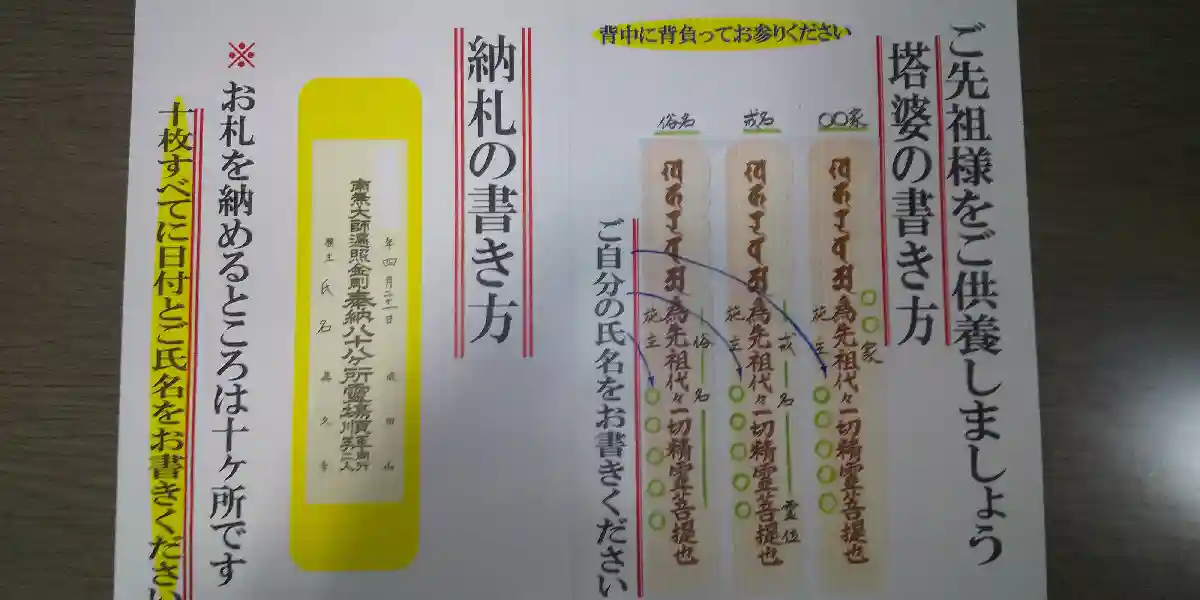 ご先祖様をご供養しましょう
塔婆の書き方
背中に背負ってお参りください
〇〇家
〇〇家
為先祖代々一切精霊菩提也
施主〇〇〇〇〇
戒名
戒名 霊位
為先祖代々一切精霊菩提也
施主〇〇〇〇〇
俗名
俗名
為先祖代々一切精霊菩提也
施主〇〇〇〇〇
ご自分の氏名をお書きください
納札の書き方
年四月二十一日
成田山
南無大師遍照金剛奉納八十八ヶ所霊場順拝同行二人
願主 氏名
真久寺
※お札を納めるところは十ヶ所です
十枚すべてに日付とご氏名をお書きください